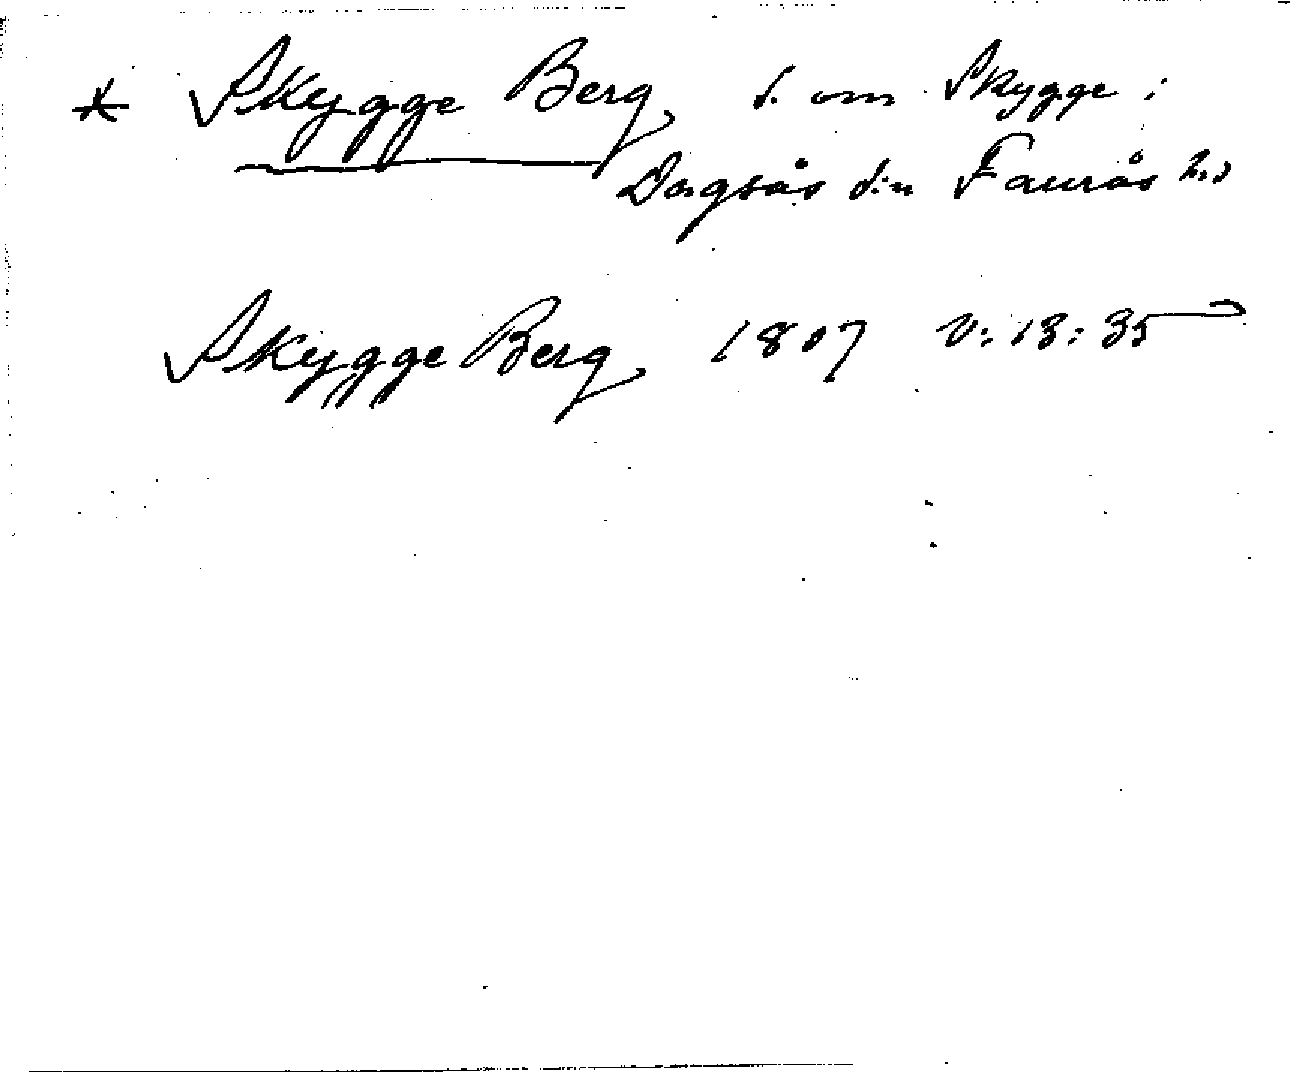 * Skygge Berg S. om Skygge i
Dagsås s:n Faurås hd
Skygge Berg 1807 V: 13: 35